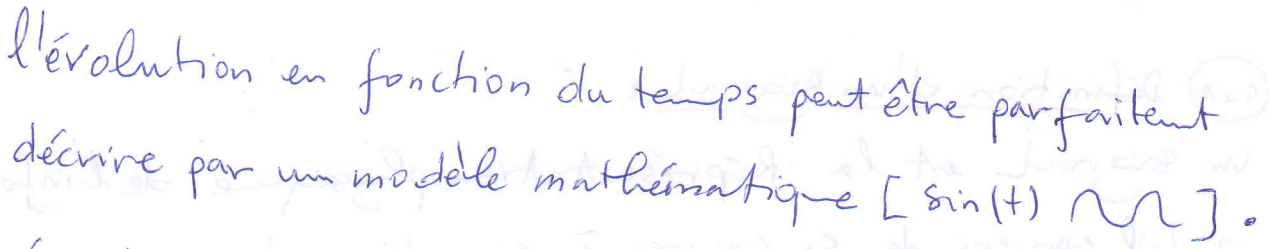 l'évolution en fonction du temps peut être parfaitemt
décrire par un modèle mathématique [ sin(t) ].